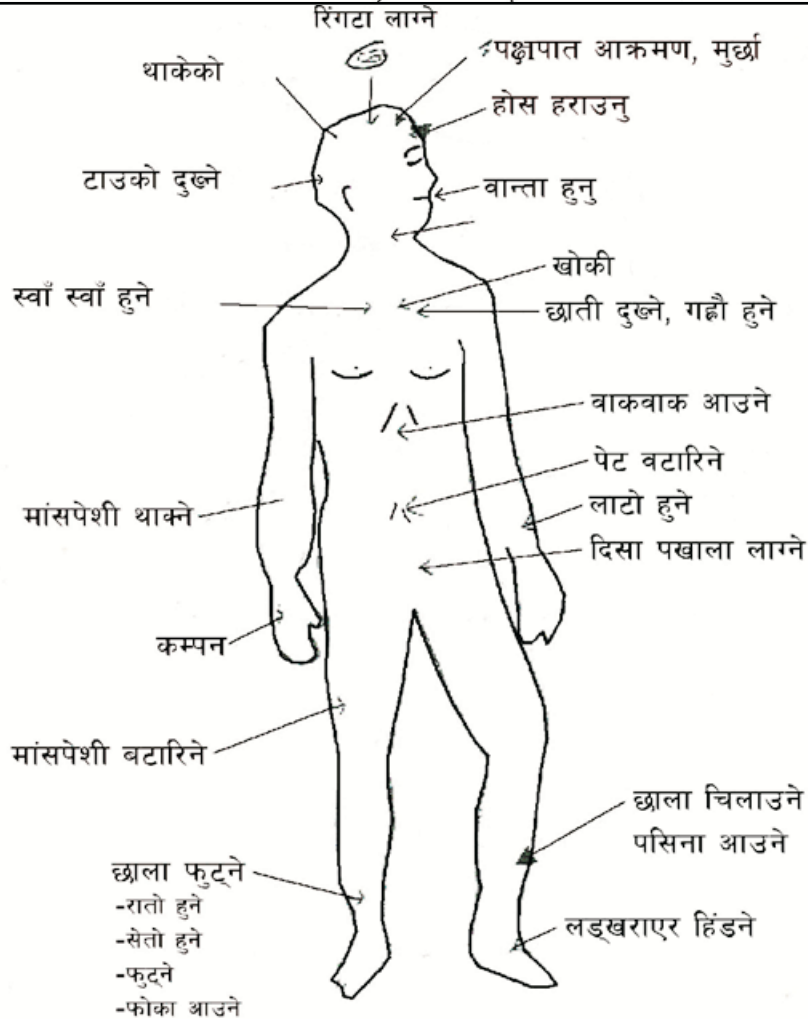 रिंगटा लाग्ने
पक्षपात आक्रमण, मुर्छा
थाकेको
होस हराउनु
टाउको दुख्ने
वान्ता हुनु
खोकी
स्वाँ स्वाँ हुने
छाती दुख्ने, गह्रौ हुने
वाकवाक आउने
पेट वटारिने
मांसपेशी थाक्ने
लाटो हुने
दिसा पखाला लाग्ने
कम्पन
मांसपेशी बटारिने
छाला चिलाउने
पसिना आउने
छाला फुट्ने
-रातो हुने
-सेतो हुने
-फुट्ने
-फोका आउने
लड्खराएर हिंडने